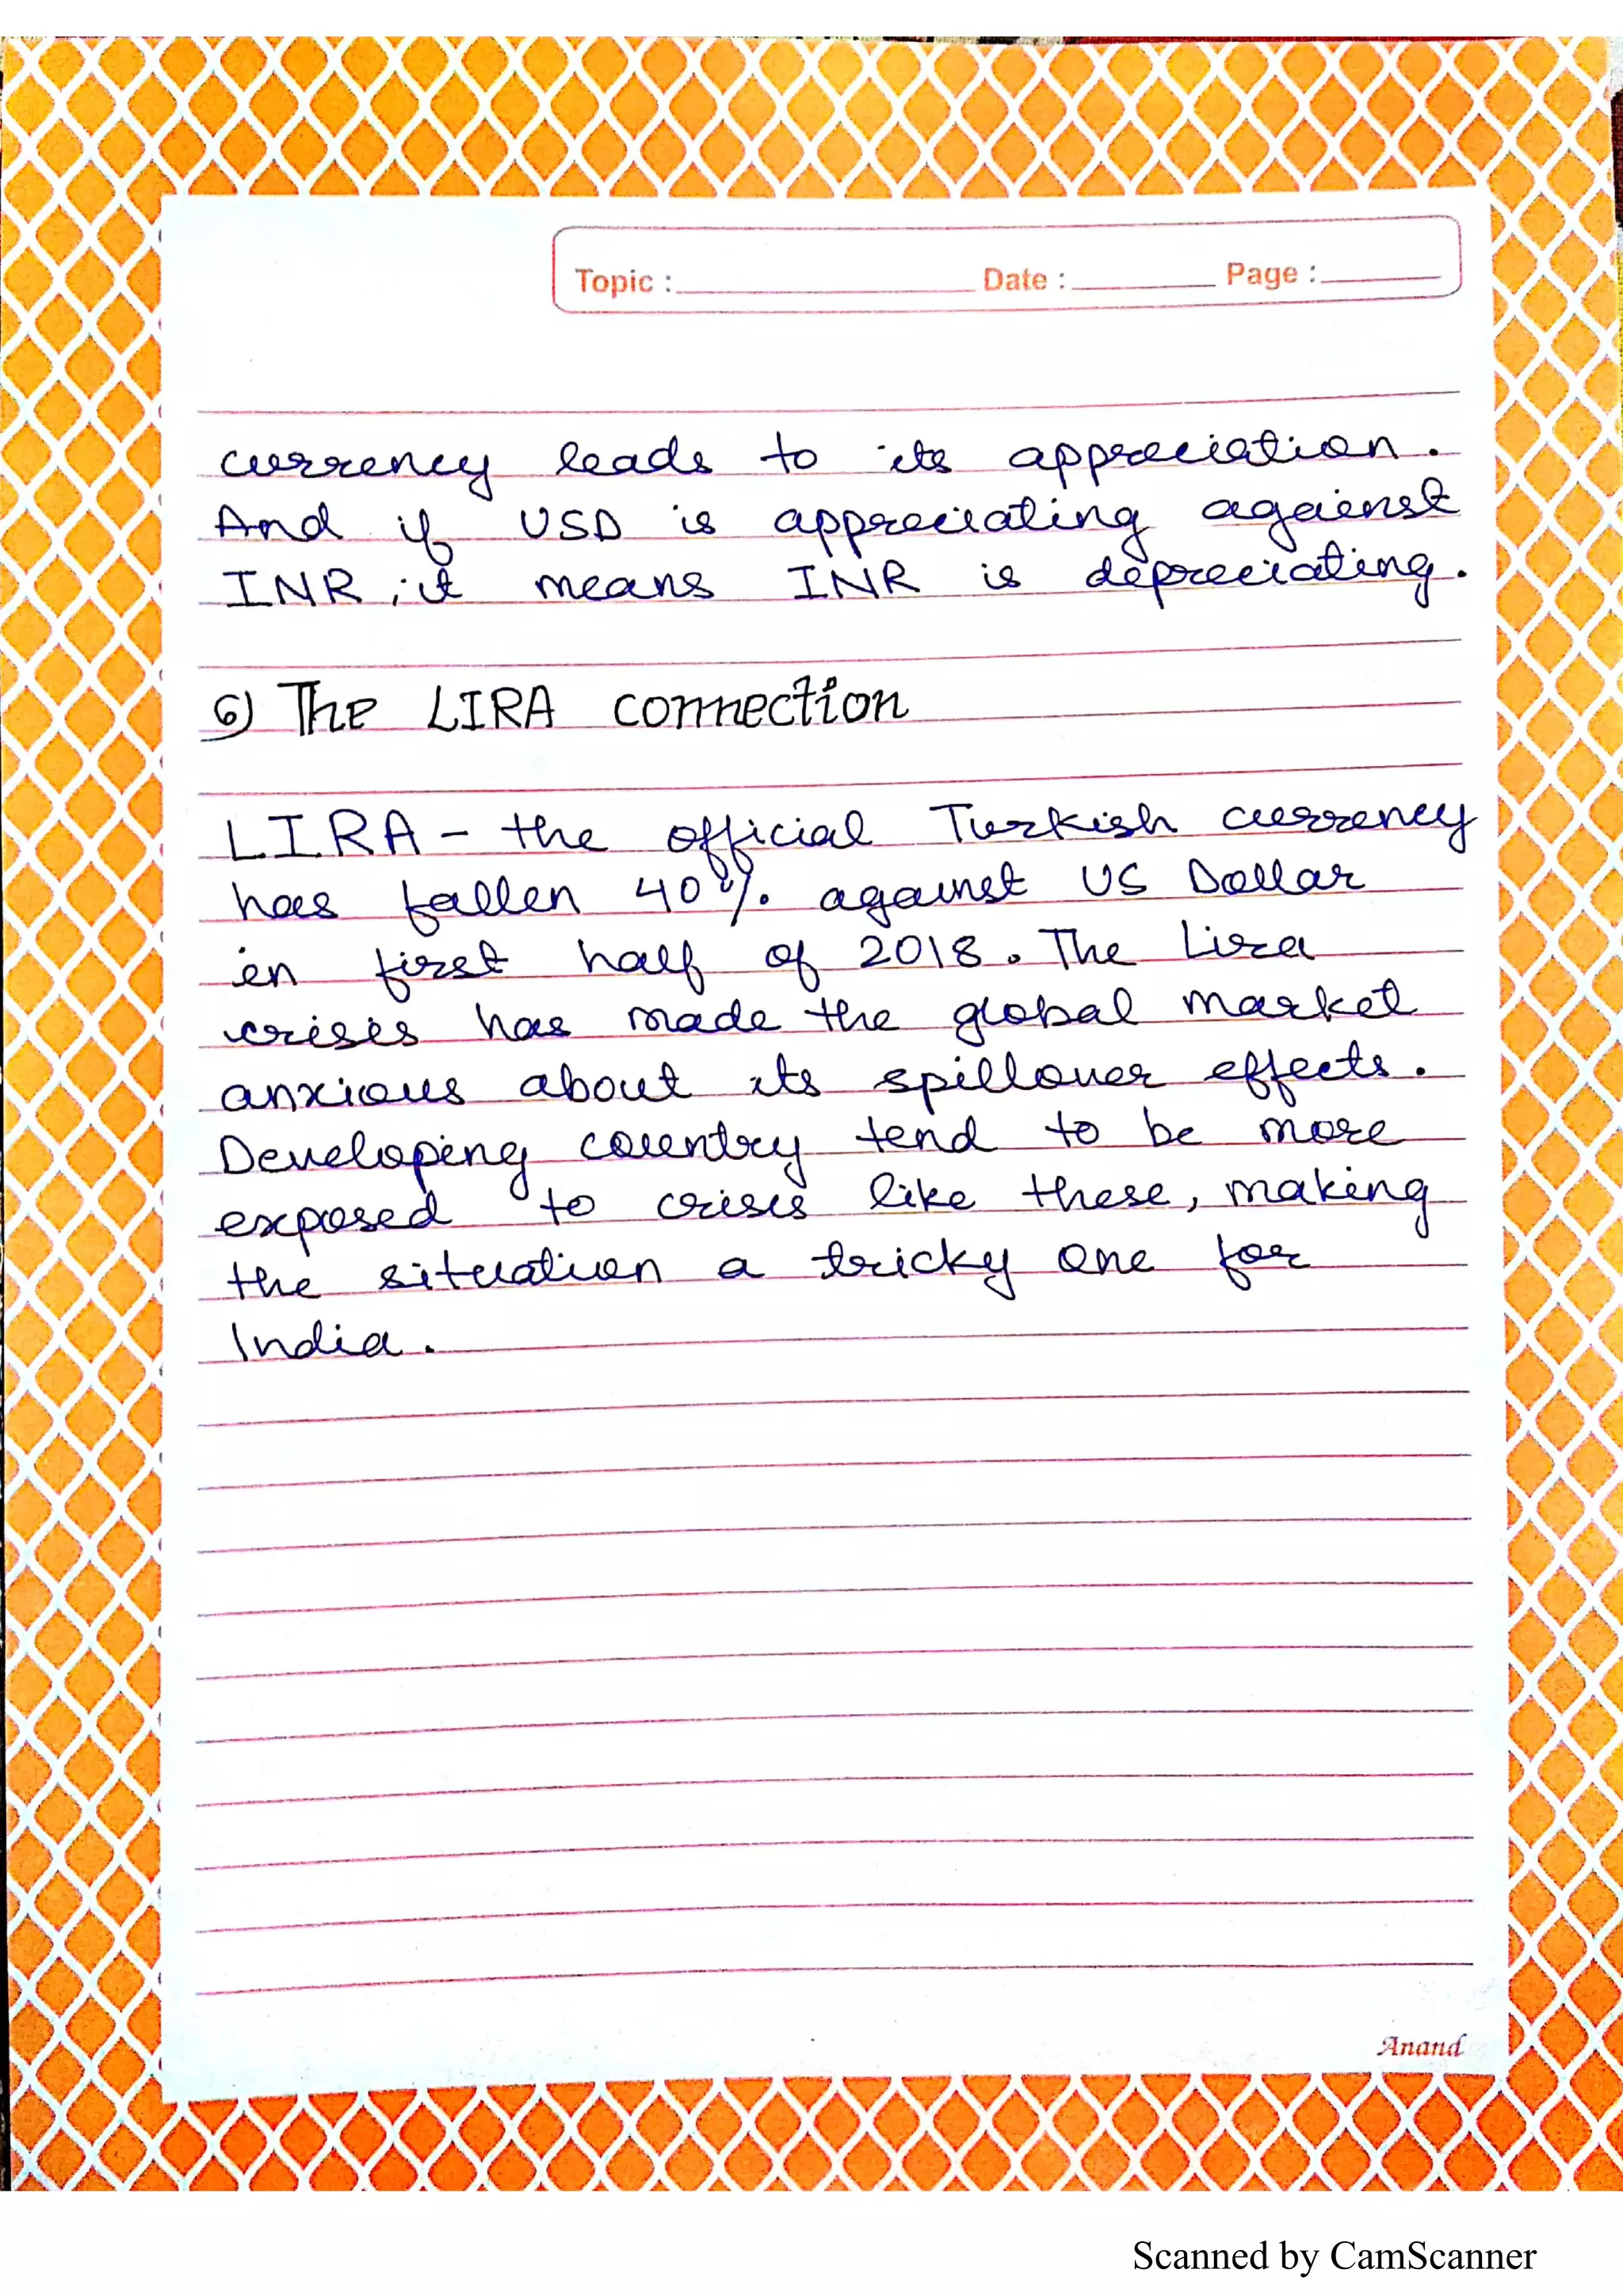 Topic : Date : Page :
currency leads to its appreciation.
And if USD is appreciating against
INR ; it means INR is depreciating.
6) The LIRA connection
LIRA - the official Turkish currency
has fallen 40% against US Dollar
in first half of 2018. The Lira
crisis has made the global market
anxious about its spillover effects.
Developing country tend to be more
exposed to crisis like these, making
the situation a tricky one for
India.
Anand
Scanned by CamScanner